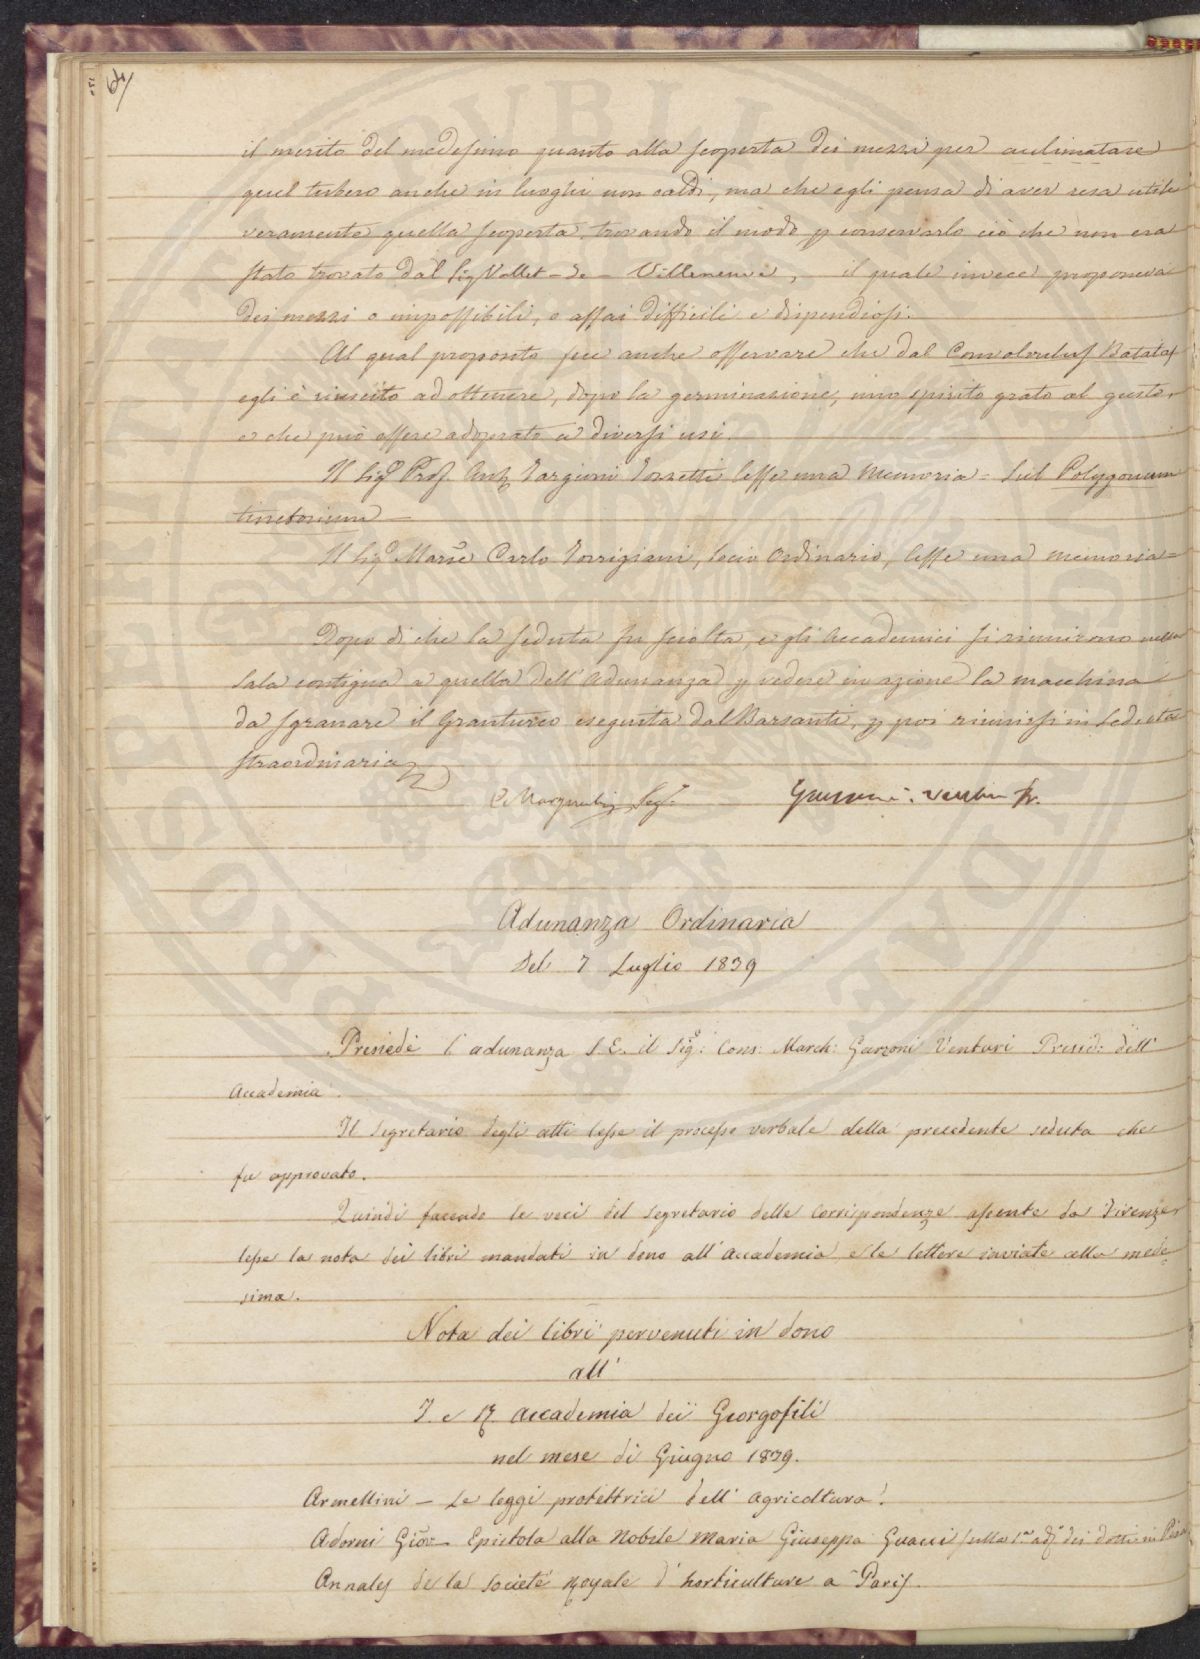 il merito del medesimo quanto alla scoperta dei mezzi per acclimatare
quel tubero anche in luoghi non caldi, ma che egli pensa di aver resa utile
veramente quella scoperta, trovando il modo p conservarlo ciò che non era
stato trovato dal Sig Vallet-de-Villeneuve, il quale invece proponeva
dei mezzi o impossibili, o assai difficili e dispendiosi.
Al qual proposito fece anche osservare che dal Convolvulus Batatas
egli è riuscito ad ottenere, dopo la germinazione, uno spirito grato al gusto,
e che può essere adoprato a diversi usi.
Il Sigr Prof. Ant. Targioni Tozzetti lesse una Memoria = Sul Polygonum
tinctorium —
Il Sigr Marse Carlo Torrigiani, Socio Ordinario, lesse una memoria =
Dopo di che la seduta fu sciolta, e gli Accademici si riunirono nella
Sala contigua a quella dell'Adunanza p vedere in azione la macchina
da sgranare il Granturco eseguita dal Barsanti, p poi riunirsi in Seduta
straordinaria
Segr.
Adunanza Ordinaria
Del 7 Luglio 1839
Presiedè l'adunanza S.E. il Sigr: Cons: March: Garzoni Venturi Presid: dell'
Accademia.
Il Segretario degli atti lesse il processo verbale della precedente seduta che
fu approvato.
Quindi facendo le veci del Segretario delle Corrispondenze assente da Firenze
lesse la nota dei libri mandati in dono all'Accademia e le lettere inviate alla mede
sima.
Nota dei libri pervenuti in dono
all'
I. e R. Accademia dei Georgofili
nel mese di Giugno 1839.
Armellini — Le leggi protettrici dell'agricoltura.
Adorni Giov — Epistola alla Nobile Maria Giuseppa Guacci sulla 1a ad. dei dotti in Pisa
Annales de la Societé Royale d'horticulture a Paris.
PROSPERITATI PUBLICAE AUGENDAE